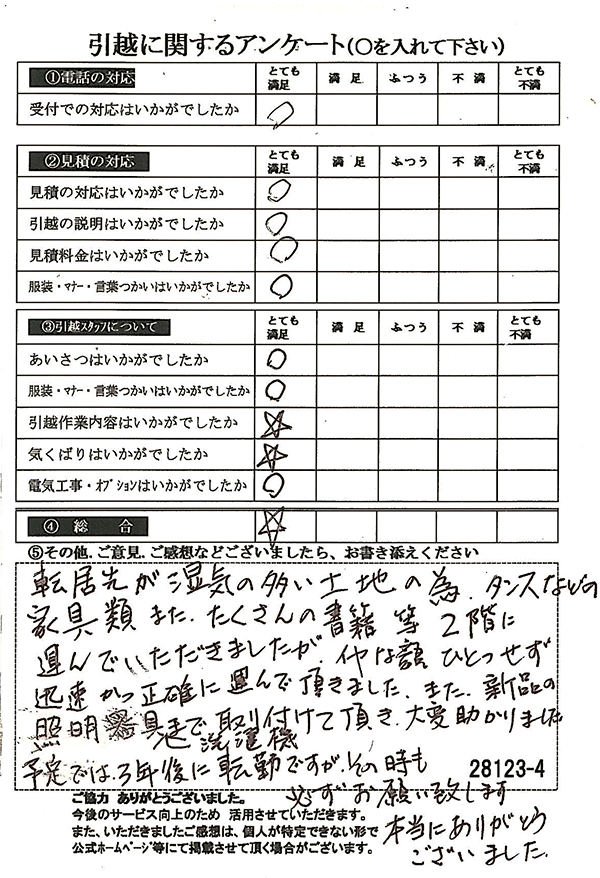 引越に関するアンケート(○を入れて下さい)
①電話の対応 とても満足 満足 ふつう 不満 とても不満
受付での対応はいかがでしたか
②見積の対応 とても満足 満足 ふつう 不満 とても不満
見積の対応はいかがでしたか
引越の説明はいかがでしたか
見積料金はいかがでしたか
服装・マナー・言葉つかいはいかがでしたか
③引越スタッフについて とても満足 満足 ふつう 不満 とても不満
あいさつはいかがでしたか
服装・マナー・言葉つかいはいかがでしたか
引越作業内容はいかがでしたか
気くばりはいかがでしたか
電気工事・オプションはいかがでしたか
④総合
⑤その他、ご意見、ご感想などございましたら、お書き添えください
転居先が湿気の多い土地の為、タンスなどの
家具類また、たくさんの書籍等2階に
運んでいただきましたが、イヤな顔ひとつせず
迅速かつ正確に運んで頂きました。また、新品の
照明器具や洗濯機まで取り付けて頂き、大変助かりました
予定では、3年後に転勤ですが、その時も
必ずお願い致します
本当にありがとう
ございました。
28123-4
ご協力 ありがとうございました。
今後のサービス向上のため 活用させていただきます。
また、いただきましたご感想は、個人が特定できない形で
公式ホームページ等にて掲載させて頂く場合がございます。